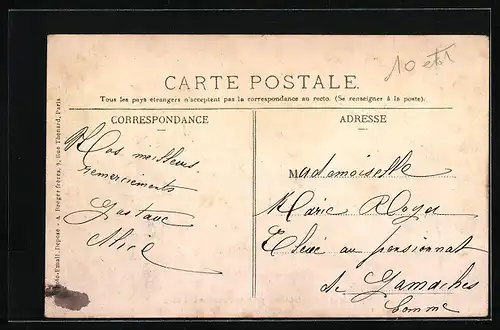 10 et 1
CARTE POSTALE.
Tous les pays étrangers n'acceptent pas la correspondance au recto. (Se renseigner à la poste).
CORRESPONDANCE
ADRESSE
Nos meilleurs
remerciements
Gustave
Alice
Mademoiselle
Marie Royer
Elève au pensionnat
de Gamaches
Somme
Photo-Email. Déposé - A. Breger frères, 9, Rue Thénard, Paris